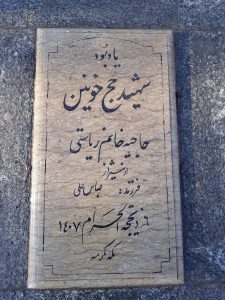 یادبود
شهید حج خونین
حاجیه خانم ریاستی
از شیراز
فرزند: عباسعلی
۶ ذیحجة الحرام ۱۴۰۷
مکه مکرمه